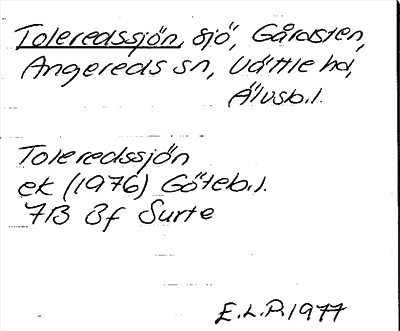 Toleredssjön, sjö, Gårdsten,
Angereds sn, Vättle hd,
Älvsb.l.
Toleredssjön
ek (1976) Göteb.l.
7B 8f Surte
E.L.P. 1977